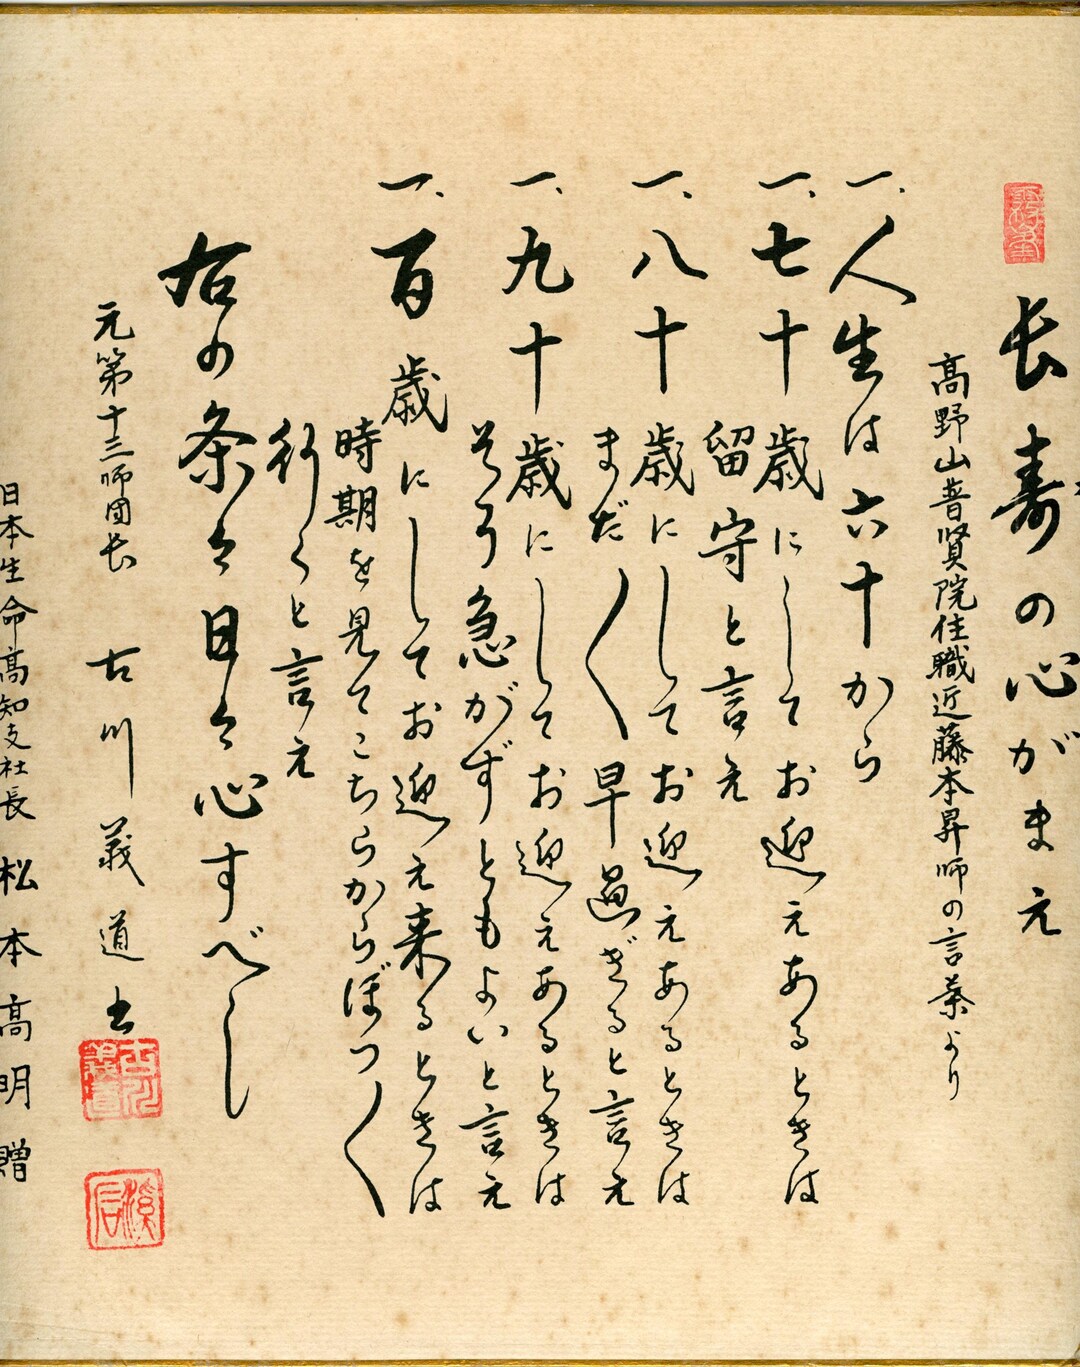 長寿の心がまえ
高野山普賢院住職近藤本昇師の言葉より
一、人生は六十から
一、七十歳にしてお迎えあるときは
留守と言え
一、八十歳にしてお迎えあるときは
まだ〱早過ぎると言え
一、九十歳にしてお迎えあるときは
そう急がずともよいと言え
一、百歳にしてお迎え来るときは
時期を見てこちらからぼつ〱
行くと言え
右の条々日々心すべし
元第十三師団長 古川義道書
日本生命高知支社長 松本高明贈